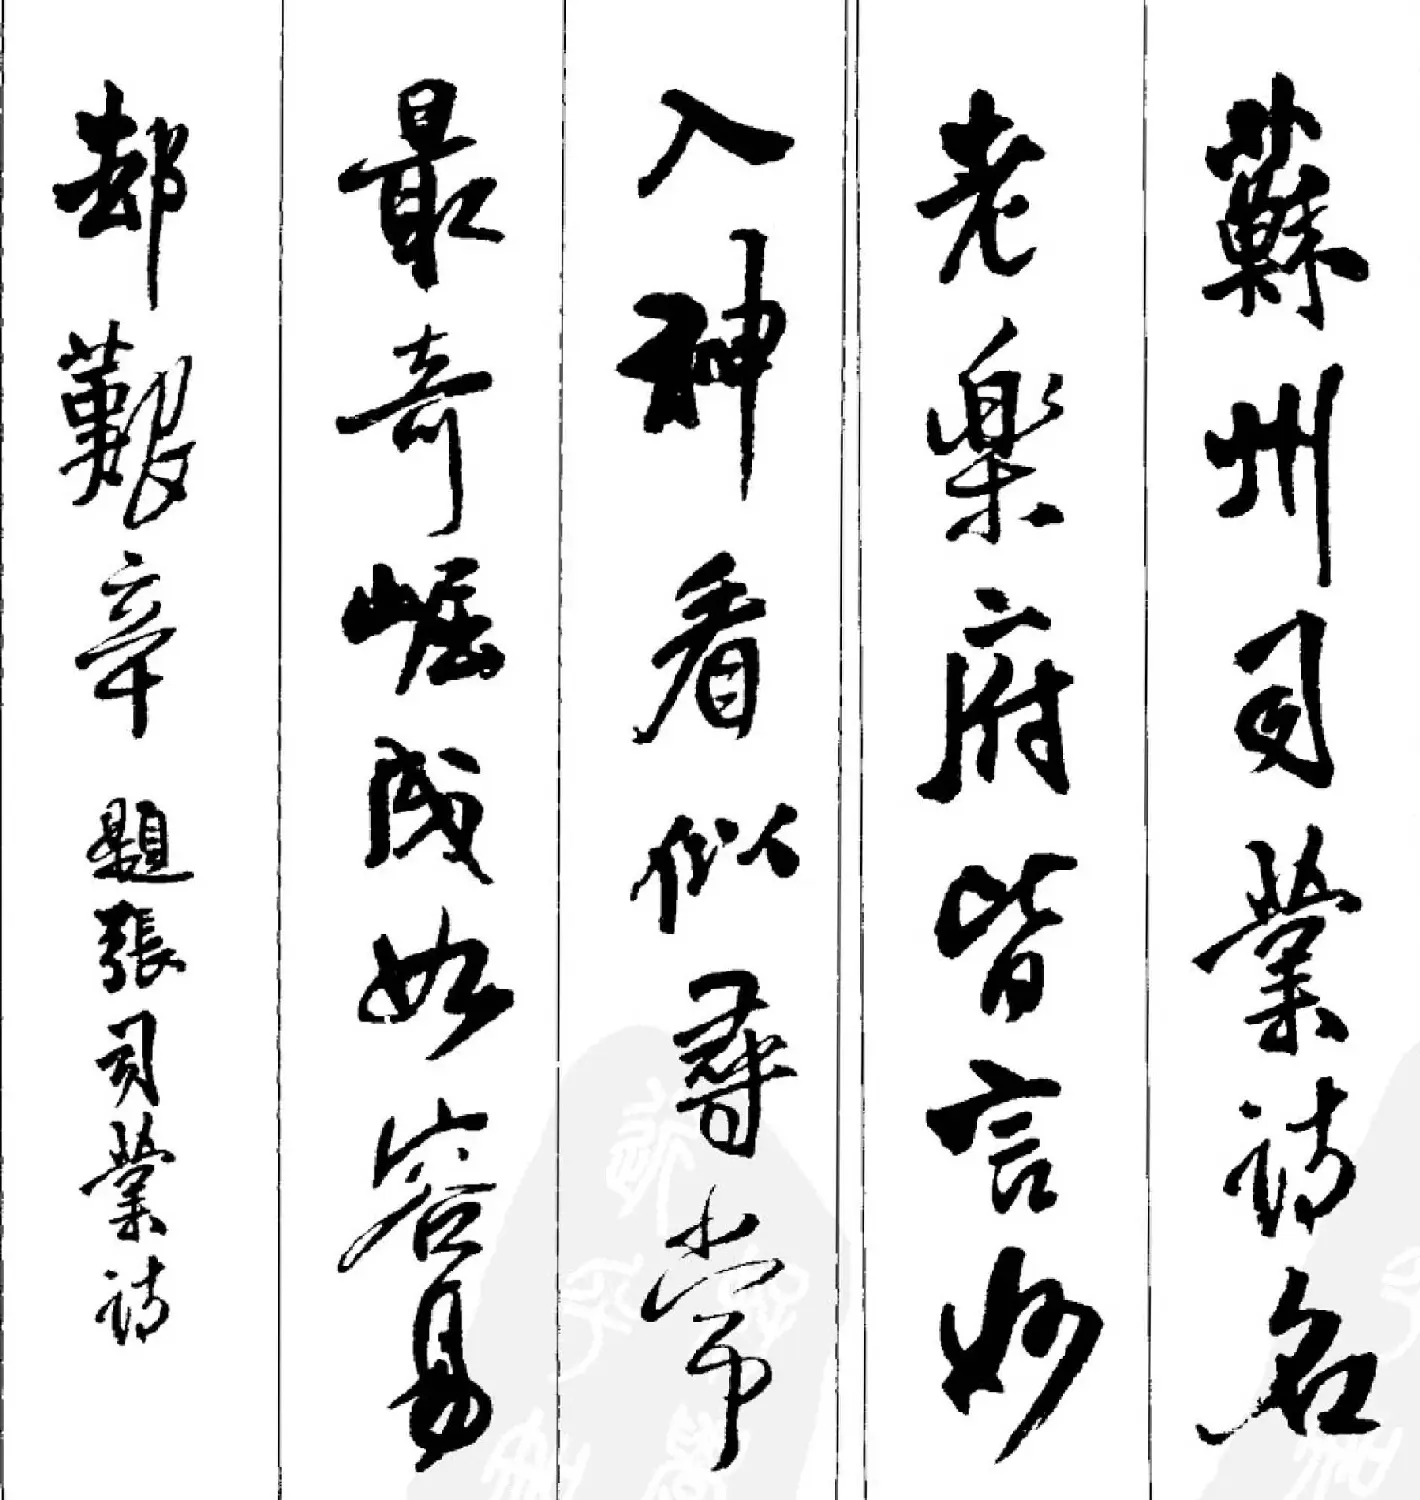 蘇州司業詩名
老樂府皆言妙
入神看似尋常
最奇崛成如容易
却艱辛 題張司業詩